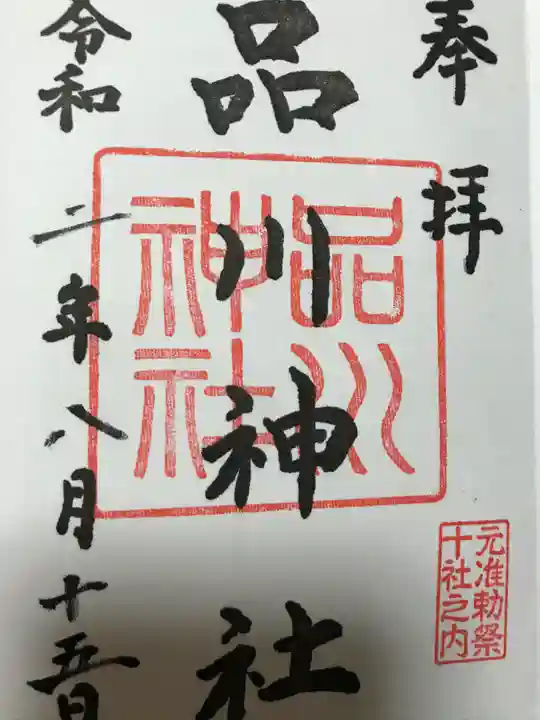 奉拝
品川神社
品川
神社
令和二年八月十五日
元准勅祭
十社之内